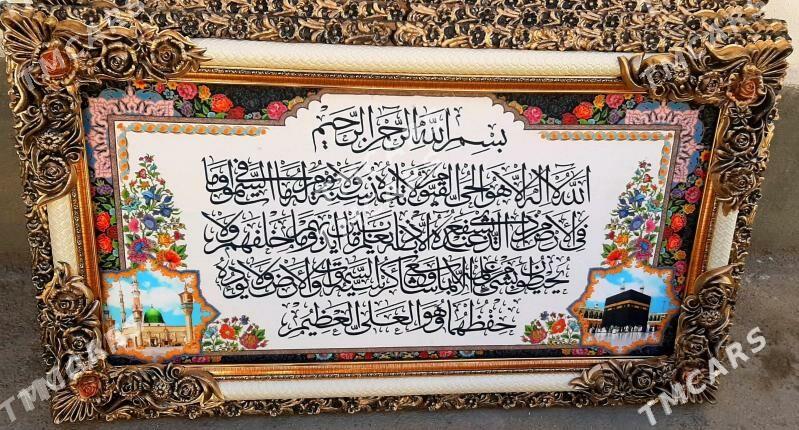 بسم الله الرحمن الرحيم
الله لا إله إلا هو الحي القيوم لا تأخذه سنة ولا نوم له ما في السموات وما
في الأرض من ذا الذي يشفع عنده إلا بإذنه يعلم ما بين أيديهم وما خلفهم ولا
يحيطون بشيء من علمه إلا بما شاء وسع كرسيه السموات والأرض ولا يؤده
حفظهما وهو العلي العظيم
TMCARS
TMCARS
TMCARS
TMCARS
TMCARS
TMCARS